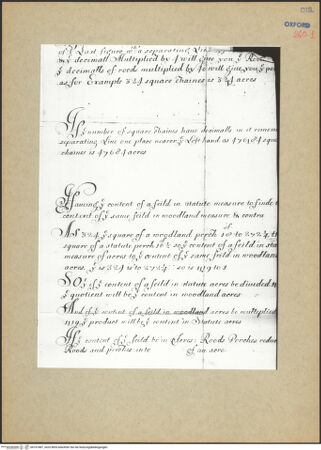 OXFORD
of ye Last figure wth a separating
ye decimall Multiplied by 4 will give you ye Roods
ye decimalls of roods multiplied by 40 will give you ye per
as for Example 324 square Chaines is 32|4 acres
If ye number of square Chains have decimalls in it remem
separating line one place nearer ye Left hand as
chaines is acres
Haveing ye content of a feild in statute measure to finde t
content of ye same feild in woodland measure to contra
As 324 ye square of a woodland perch is to 272,4 th
square of a statute perch so ye content of a feild in stat
measure of acres to ye content of ye same feild in woodland
acres. ye is 324 is to 272,4 so is 1,19 to 1
So if ye content of a feild in statute acres be divided
ye quotient will be ye content in woodland acres
And if ye content of a feild in woodland acres be multiplied
1,19 ye product will be ye content in Statute acres
If ye content of ye feild be in Acres: Roods Perches reduc
Roods and perches into of an acre